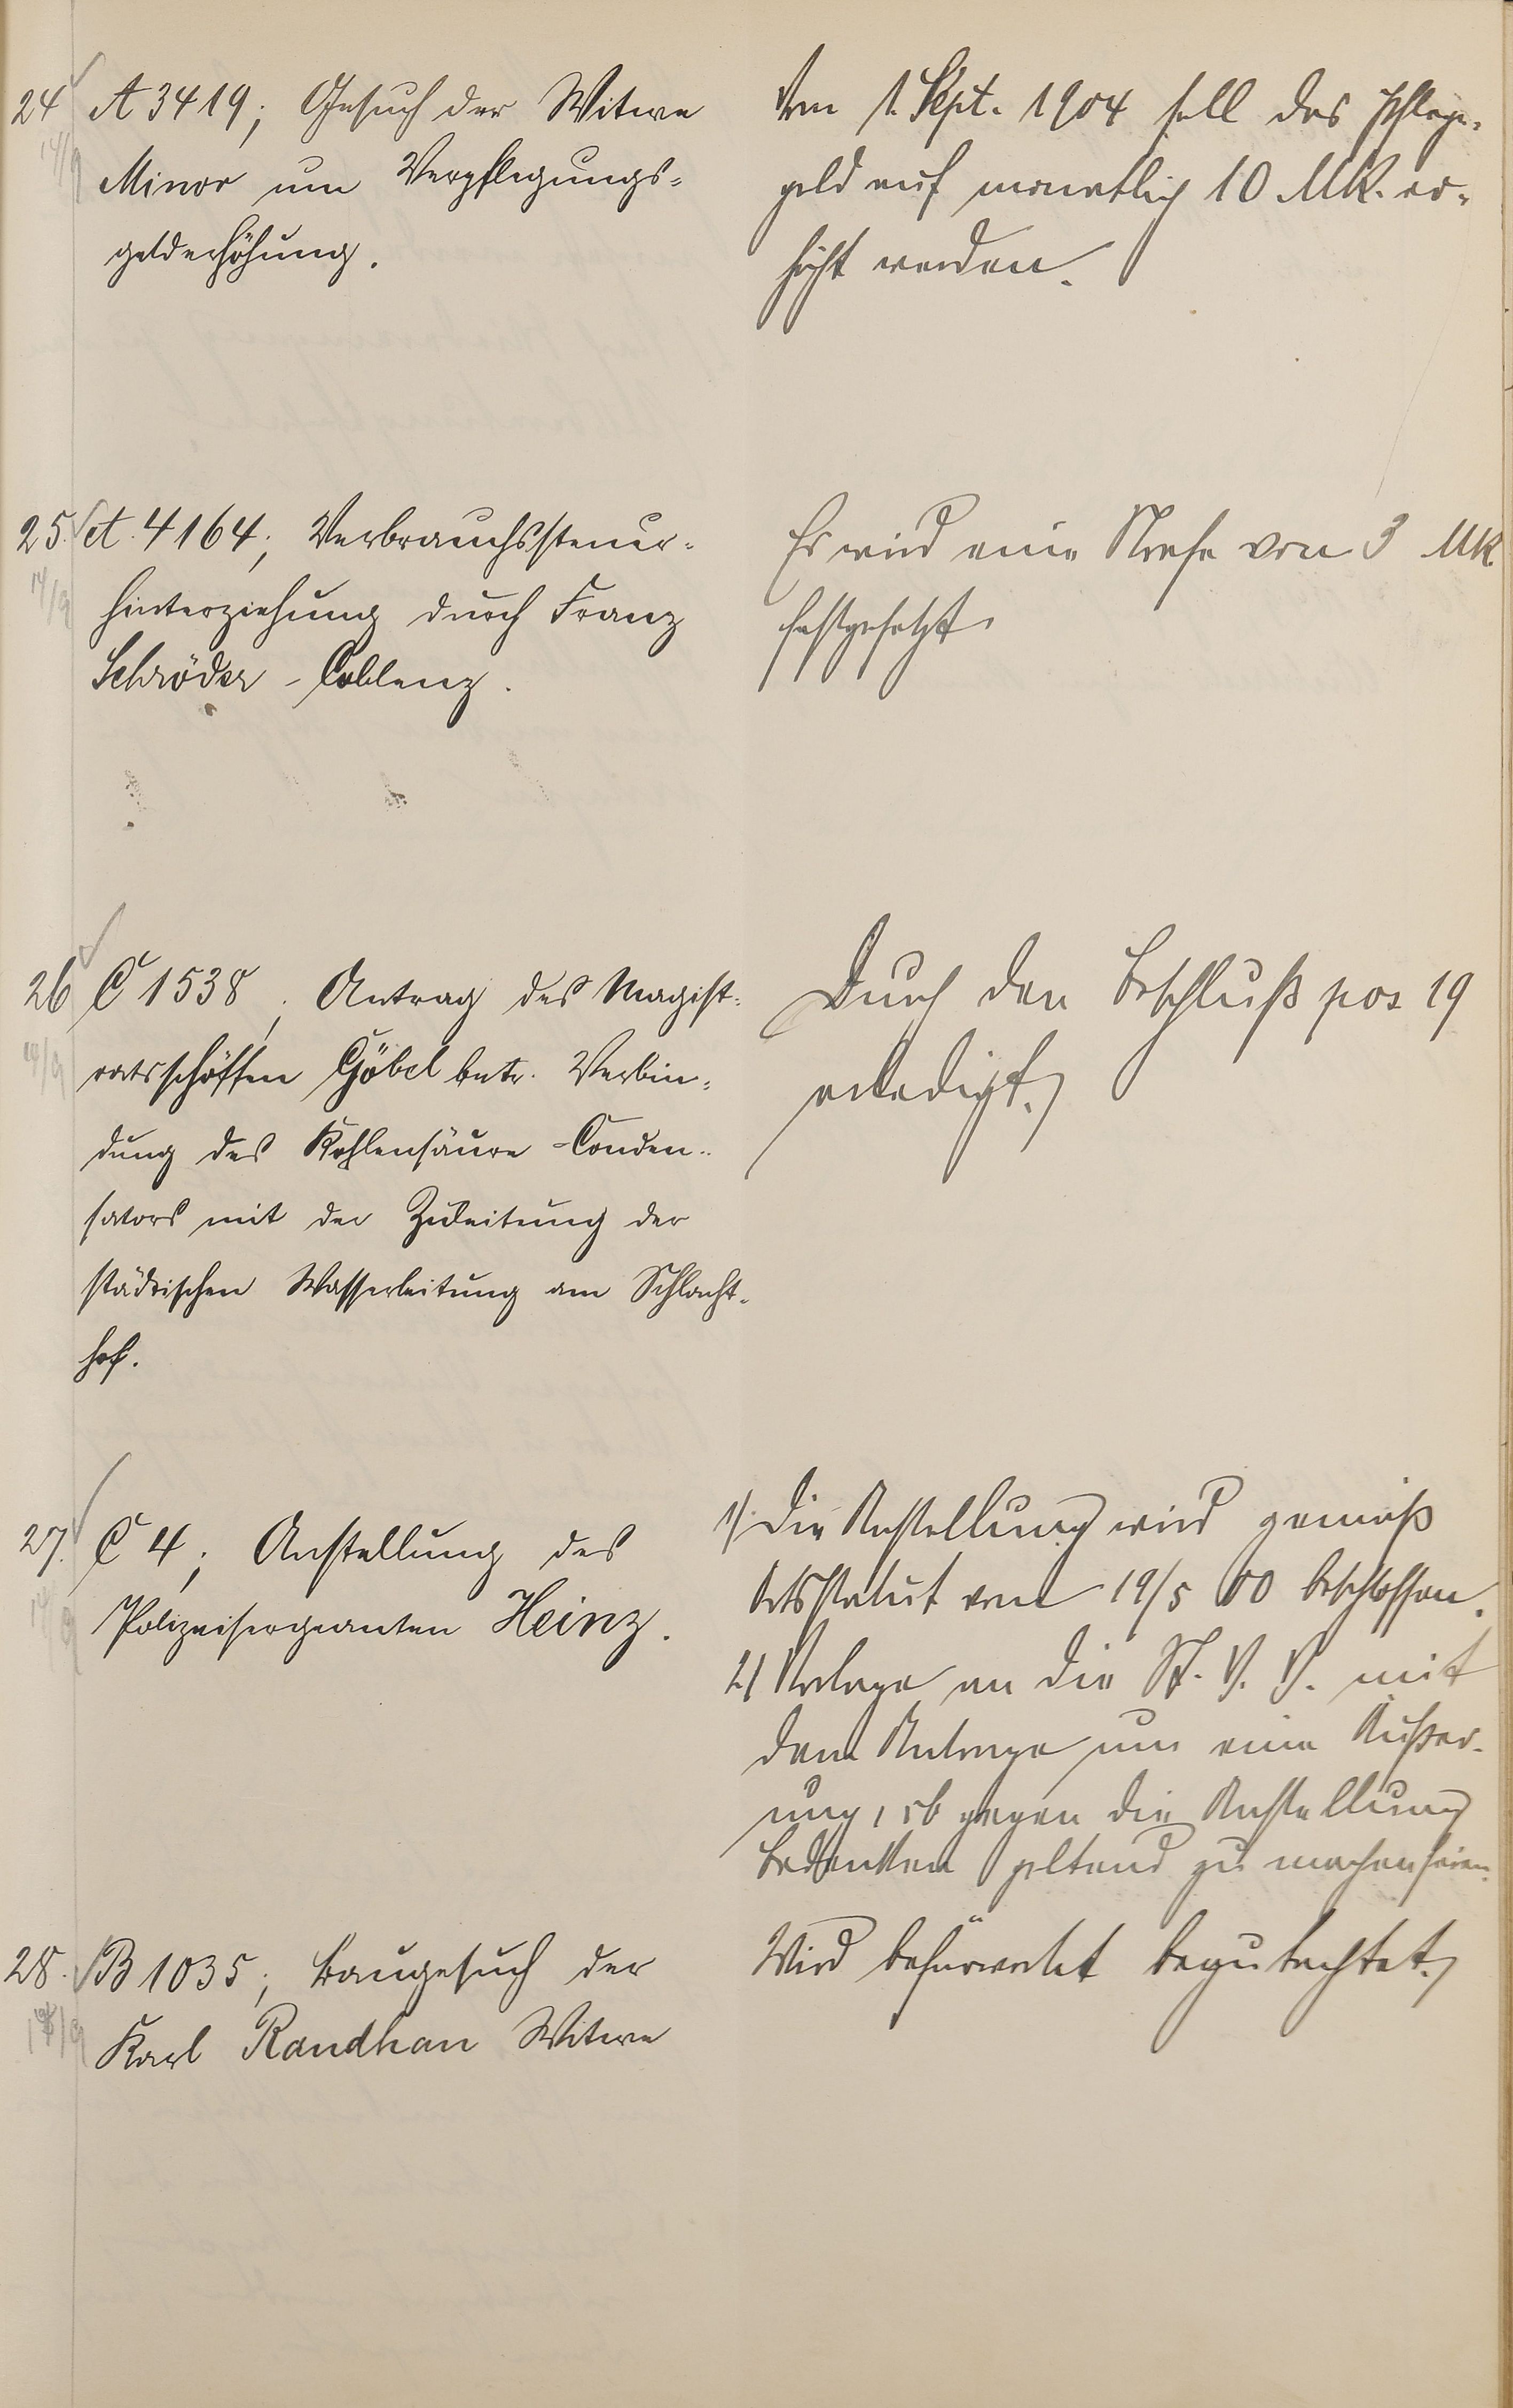 24 A 3419; Gesuch der Witwe
14/9
Minor um Verpflegungs-
gelderhöhung.
Vom 1. Sept. 1904 soll das Pflege-
geld auf monatlich 10 Mk. er-
höht werden.
25. A. 4164; Verbrauchssteuer-
14/9
hinterziehung durch Franz
Schröder - Coblenz.
Es wird eine Strafe von 3 Mk.
festgesetzt.
26 C 1538; Antrag des Magist-
14/9
ratsschöffen Göbel betr. Verbin-
dung des Kohlensäure-Conden-
sators mit der Zuleitung der
städtischen Wasserleitung am Schlacht-
hof.
Durch den Beschluß pos 19
erledigt.
27. C 4; Anstellung des
14/9
Polizeisergeanten Heinz.
1) Die Anstellung wird gemäß
Ortsstatut vom 19/5 00 beschlossen.
2) Vorlage an die St. V. V. mit
dem Antrage um eine Äußer-
ung, ob gegen die Anstellung
Bedenken geltend zu machen seien.
28. B 1035; Baugesuch der
14/9
Karl Randhan Witwe
Wird befürwortet begutachtet.